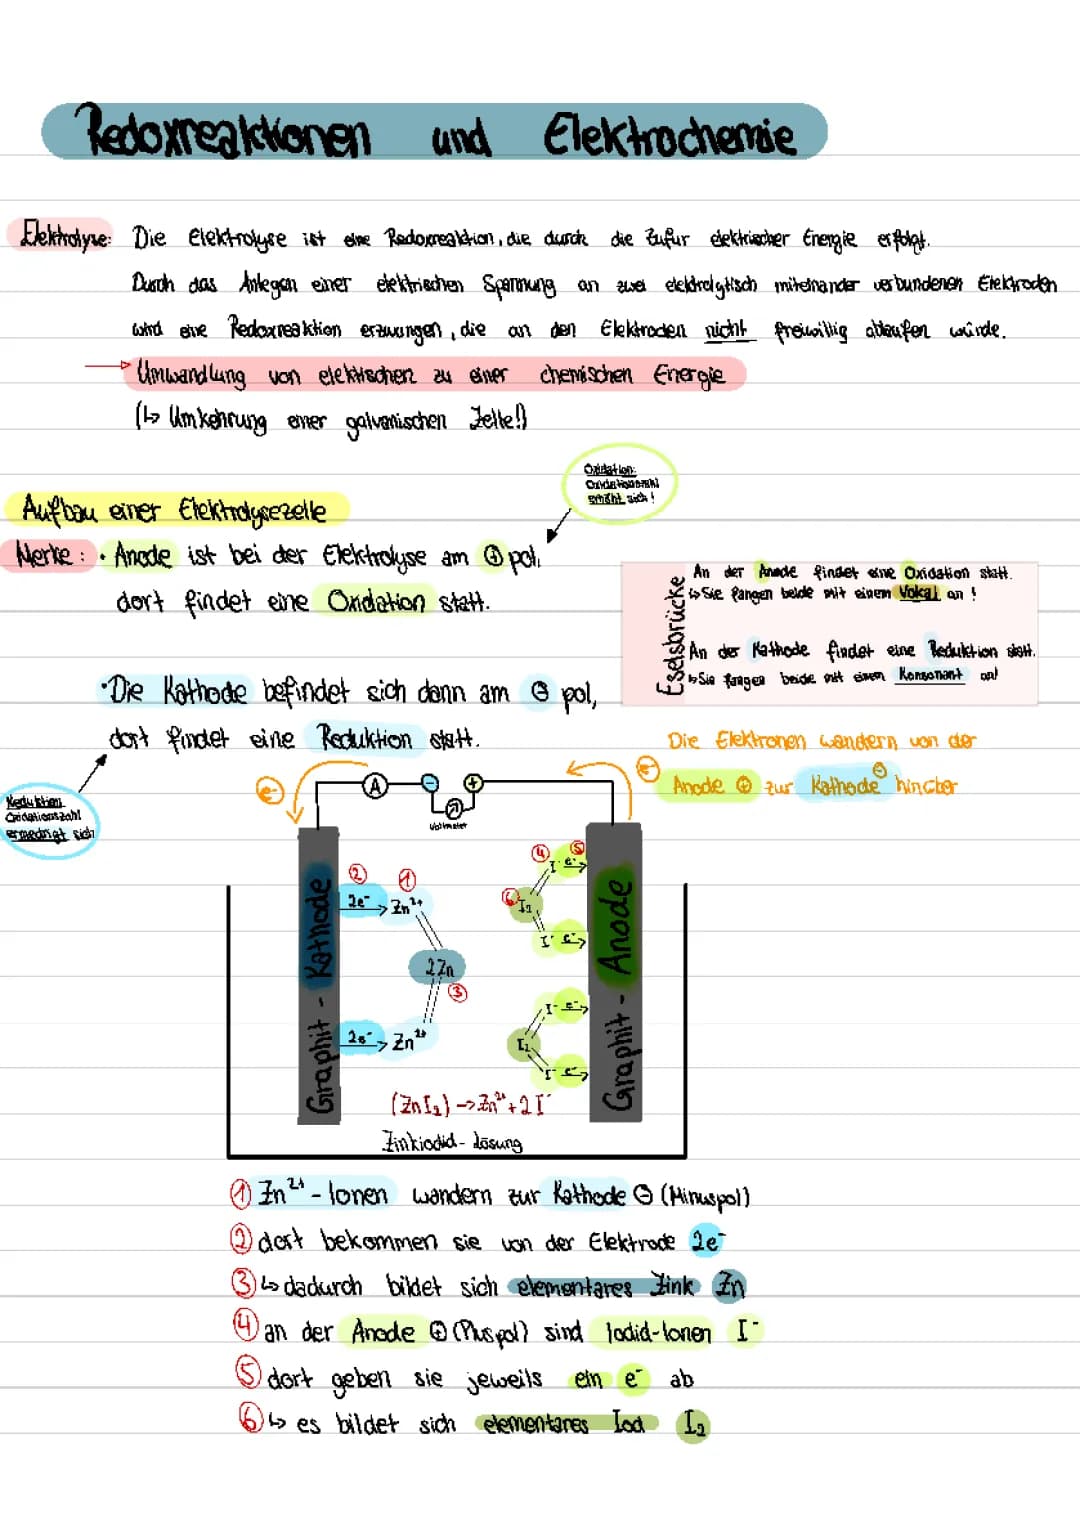 Redoxreaktionen und Elektrochemie
Elektrolyse: Die Elektrolyse ist eine Redoxreaktion, die durch die Zufur elektrischer Energie erfolgt.
Durch das Anlegen einer elektrischen Spannung an zwei elektrolytisch miteinander verbundenen Elektroden
wird eine Redoxreaktion erzwungen, die an den Elektroden nicht freiwillig ablaufen würde.
→ Umwandlung von elektrischen zu einer chemischen Energie
(↳ Umkehrung einer galvanischen Zelle!)
Oxidation:
Oxidationszahl
erhöht sich!
Aufbau einer Elektrolysezelle
Merke: • Anode ist bei der Elektrolyse am ⊕ pol,
dort findet eine Oxidation statt.
Eselsbrücke
An der Anode findet eine Oxidation statt.
↳ Sie fangen beide mit einem Vokal an!
An der Kathode findet eine Reduktion statt.
↳ Sie fangen beide mit einem Konsonant an!
• Die Kathode befindet sich dann am ⊖ pol,
dort findet eine Reduktion statt.
Reduktion:
Oxidationszahl
erniedrigt sich
Die Elektronen wandern von der
Anode ⊕ zur Kathode ⊖ hinüber
e⁻ A − + e⁻
Voltmeter
Graphit - Kathode
② 2e⁻ → ① Zn²⁺
2Zn ③
2e⁻ → Zn²⁺
④ I⁻ ⑤ e⁻ →
⑥ I₂
I⁻ e⁻ →
I⁻ e⁻ →
I₂
I⁻ e⁻ →
Graphit - Anode
(ZnI₂) → Zn²⁺ + 2I⁻
Zinkiodid-Lösung
① Zn²⁺ - Ionen wandern zur Kathode ⊖ (Minuspol)
② dort bekommen sie von der Elektrode 2e⁻
③ ↳ dadurch bildet sich elementares Zink Zn
④ an der Anode ⊕ (Pluspol) sind Iodid-Ionen I⁻
⑤ dort geben sie jeweils ein e⁻ ab
⑥ ↳ es bildet sich elementares Iod I₂